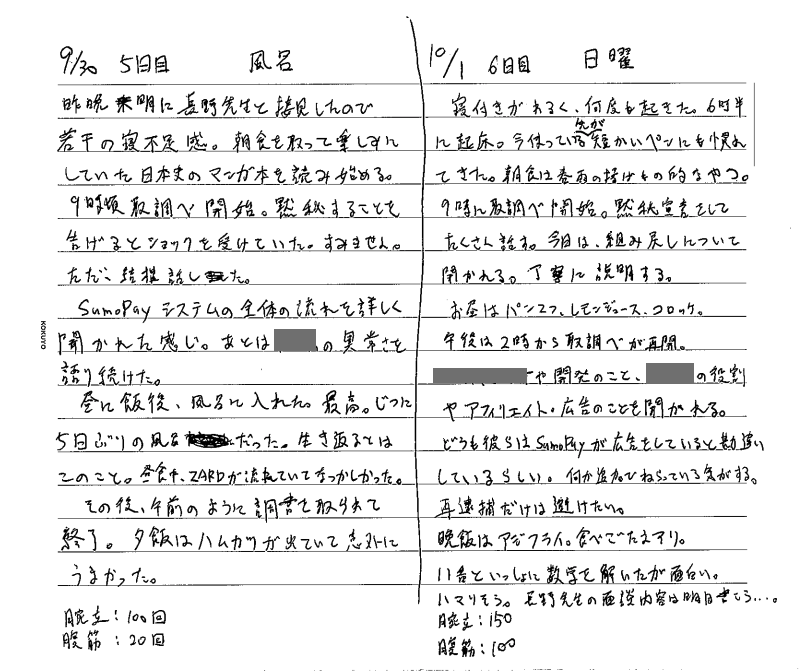 9/30 5日目 風呂
昨晩 未明に 長野先生と 接見したので
若干の寝不足感。朝食を取って楽しみに
していた日本史のマンガ本を読み始める。
9時頃 取調べ開始。黙秘することを
告げるとショックを受けていた。すみません。
ただ、結構話した。
SumoPayシステムの全体の流れを詳しく
聞かれた感い。あとは の異常さを
語り続けた。
昼ご飯後、風呂に入れた。最高。じつに
5日ぶりの風呂 だった。生き返るとは
このこと。昼食中、ZARDが流れていてなつかしかった。
その後、午前のように調書を取られて
終了。夕飯はハムカツが出ていて意外に
うまかった。
腕立:100回
腹筋:20回
10/1 6日目 日曜
寝付きがわるく、何度も起きた。6時半
に起床。今使っている先が短かいペンにも慣れ
てきた。朝食は春雨の揚げもの的なやつ。
9時に取調べ開始。黙秘宣言をして
たくさん話す。今日は、組み戻しについて
聞かれる。丁寧に説明する。
お昼はパン2つ、レモンジュース、コロッケ。
午後は2時から取調べが再開。
や開発のこと、 の役割
やアフィリエイト・広告のことを聞かれる。
どうも彼らはSumoPayが広告をしていると勘違い
しているらしい。何か追加でひねっている気がする。
再逮捕だけは避けたい。
晩飯はアジフライ。食べてたまアリ。
11番といっしょに数学を解いたが面白い。
ハマりそう。長野先生の面接内容は明日書こう…。
腕立:150
腹筋:100
KOKUYO